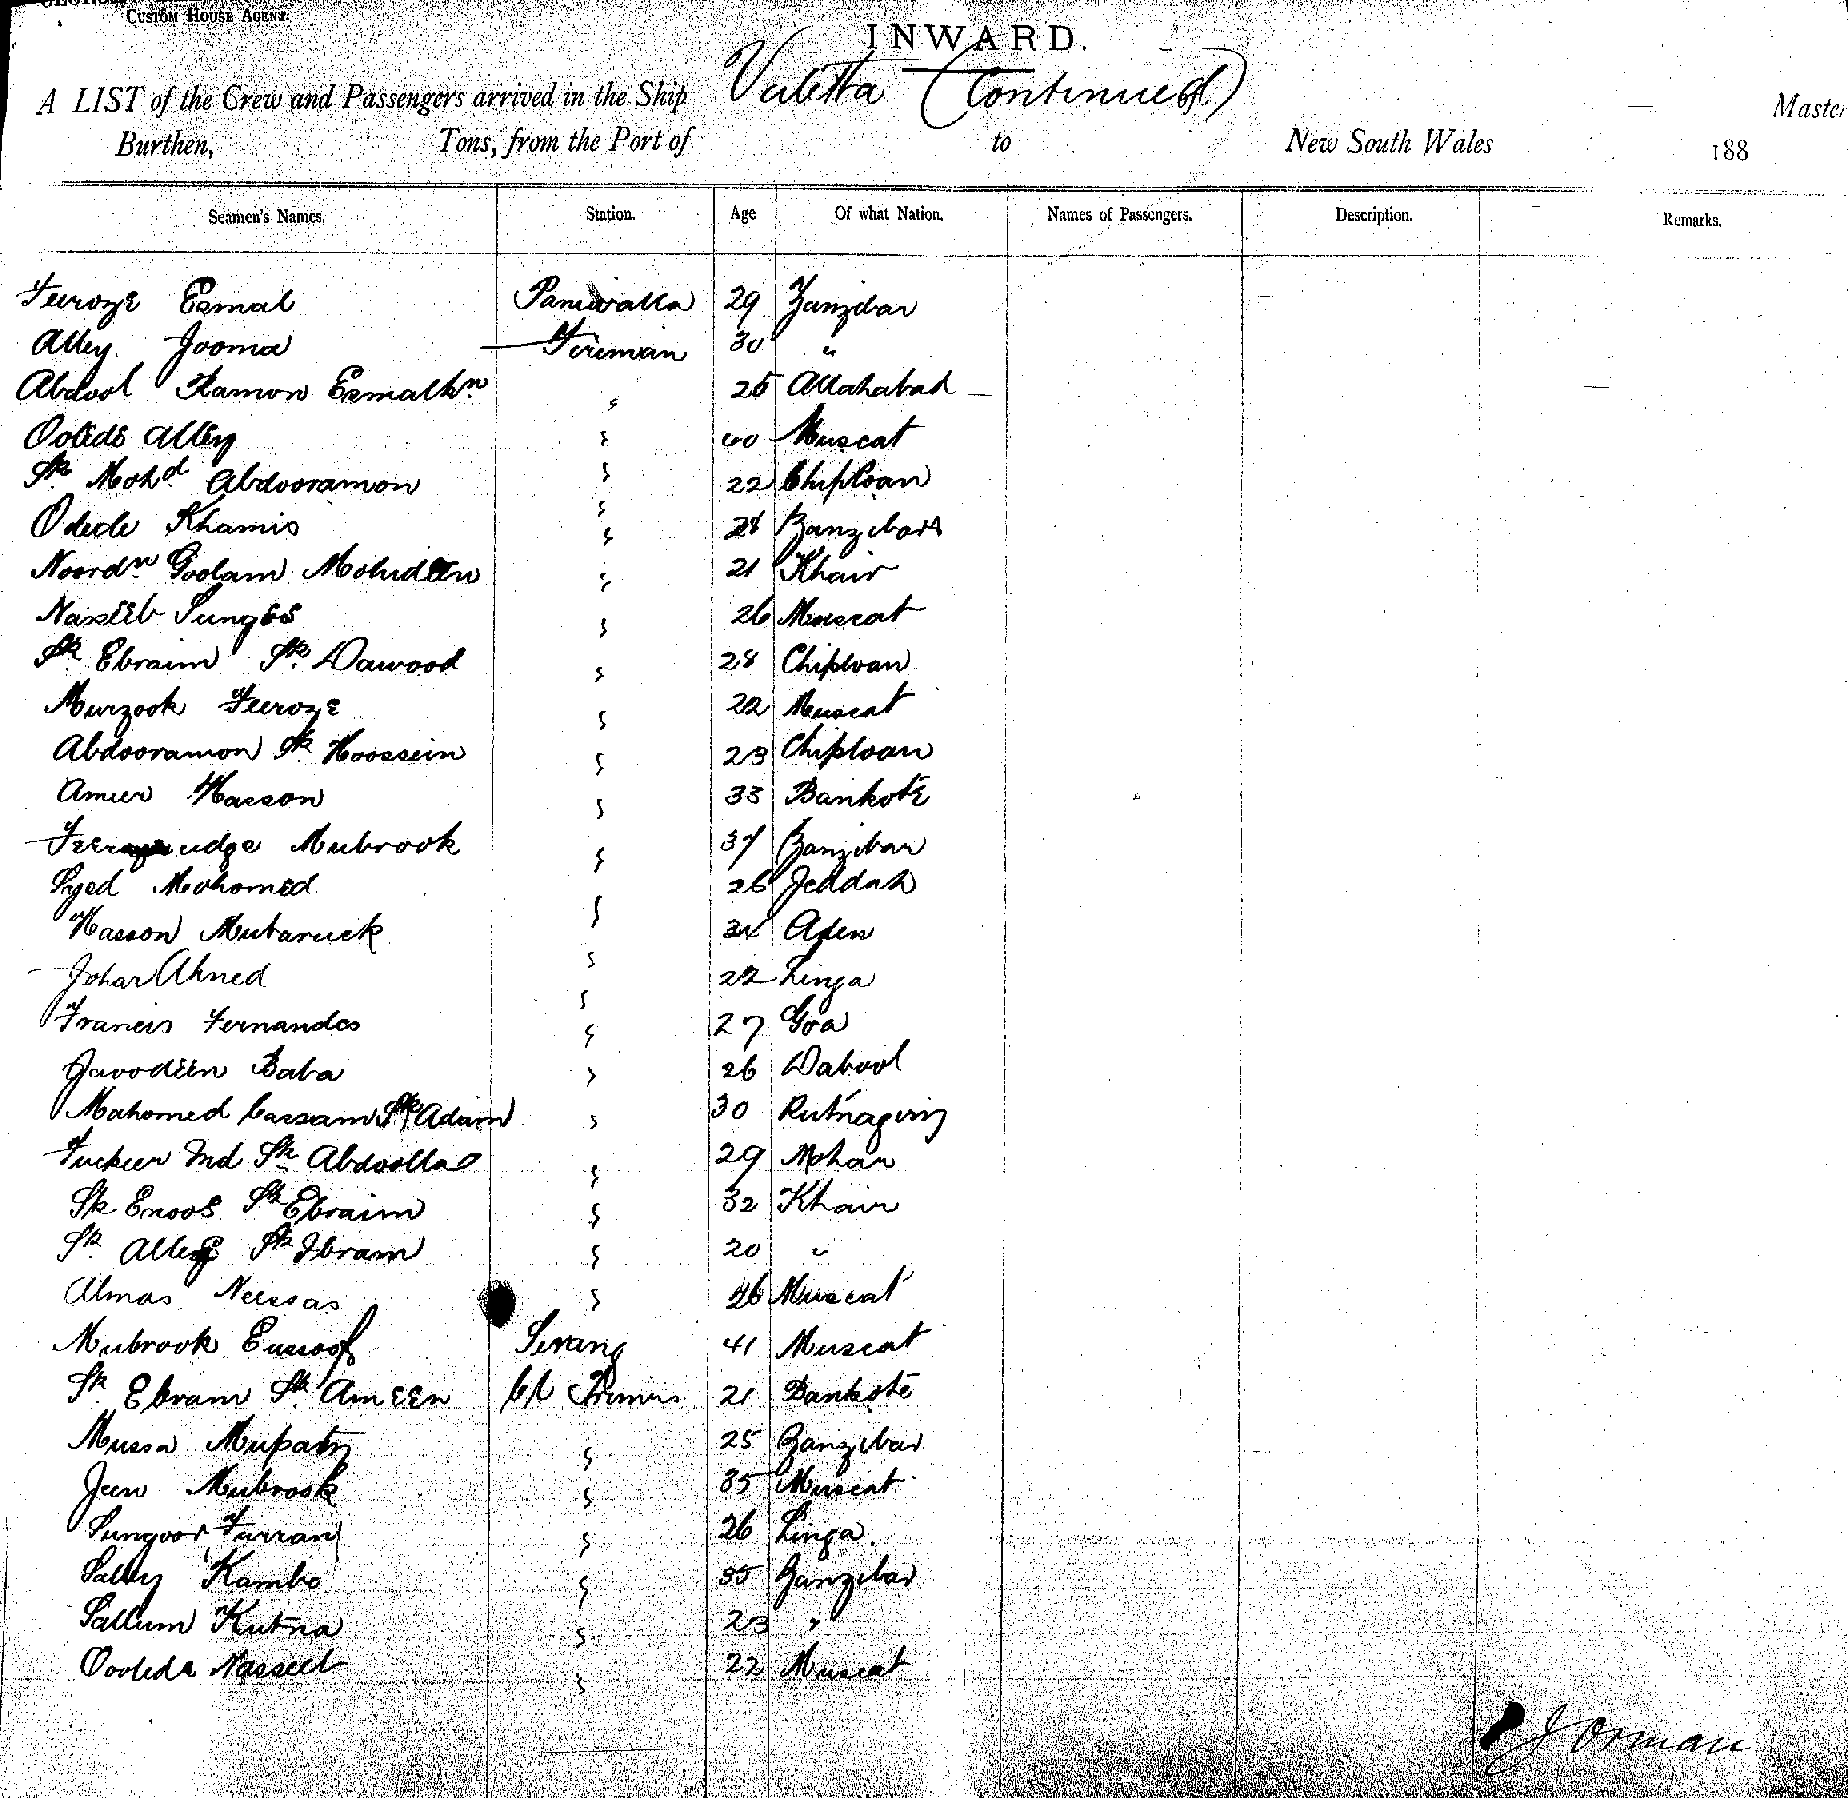 CUSTOM HOUSE AGENT.
INWARD.
A LIST of the Crew and Passengers arrived in the Ship Valetta (Continued) Master
Burthen, Tons, from the Port of to New South Wales 188
Seamen's Names. Station. Age Of what Nation. Names of Passengers. Description. Remarks.
Feeroze Esmal Paniwalla 29 Zanzibar
Alley Jooma Fireman 30 "
Abdool Ramon Esmalkn 25 Allahabad
Ooledé Alley " 40 Muscat
Sk Mohd Abdooramon " 22 Chiploan
Odede Khamis " 28 Zanzibar
Noordn Goolam Mohideen " 21 Khair
Nasseeb Sungéé " 26 Muscat
Sk Ebraim Sk Dawood " 28 Chiploan
Murzook Feeroze " 22 Muscat
Abdooramon Sk Hoossein " 23 Chiploan
Ameer Hasson " 33 Bankote
udge Mubrook " 37 Zanzibar
Syed Mohomed " 26 Jeddah
Hasson Mubaruck " 34 Aden
Johar Ahmed " 22 Linga
Francis Fernandes " 27 Goa
Javodeen Baba " 26 Dabool
Mahomed Cassam Sk Adam " 30 Rutnagiry
Fuckeer Md Sk Abdoolla " 29 Mohar
Sk Enoos Sk Ebraim " 32 Khair
Sk Alley Sk Ibram " 20 "
Almas Neessas " 26 Muscat
Mubrook Eussoof Serang 41 Muscat
Sk Ebram Sk Ameen Cl Trimmers 21 Bankote
Mussa Mupaty " 25 Zanzibar
Jeen Mubrook " 35 Muscat
Sungoor Furran " 26 Linga
Sally Kambo " 35 Zanzibar
Sallum Kutna " 23 "
Oooleda Nasseeb " 22 Muscat
J Orman